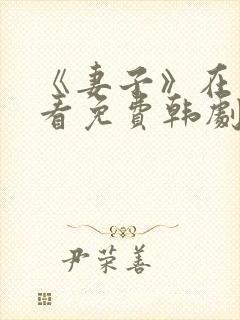 《妻子》在
看免费韩剧
尹荣善